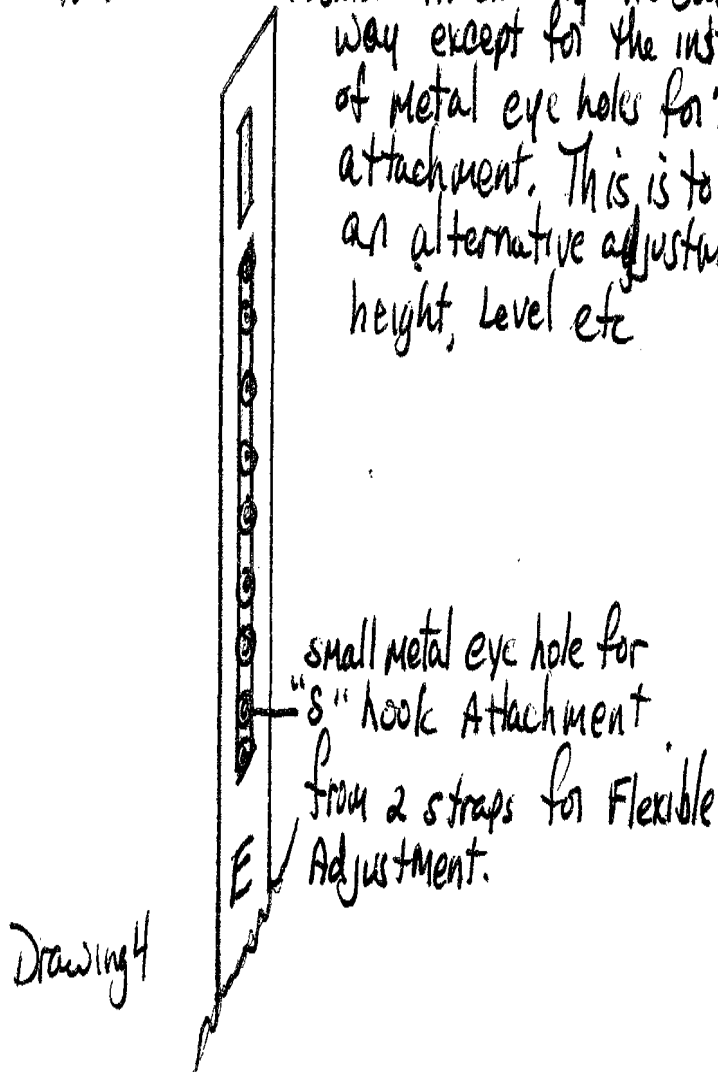 way except for the
of metal eye holes for
attachment. This is to
an alternative
height, Level etc
small metal eye hole for
"S" hook Attachment
from 2 straps for Flexible
Adjustment.
E
Drawing 4